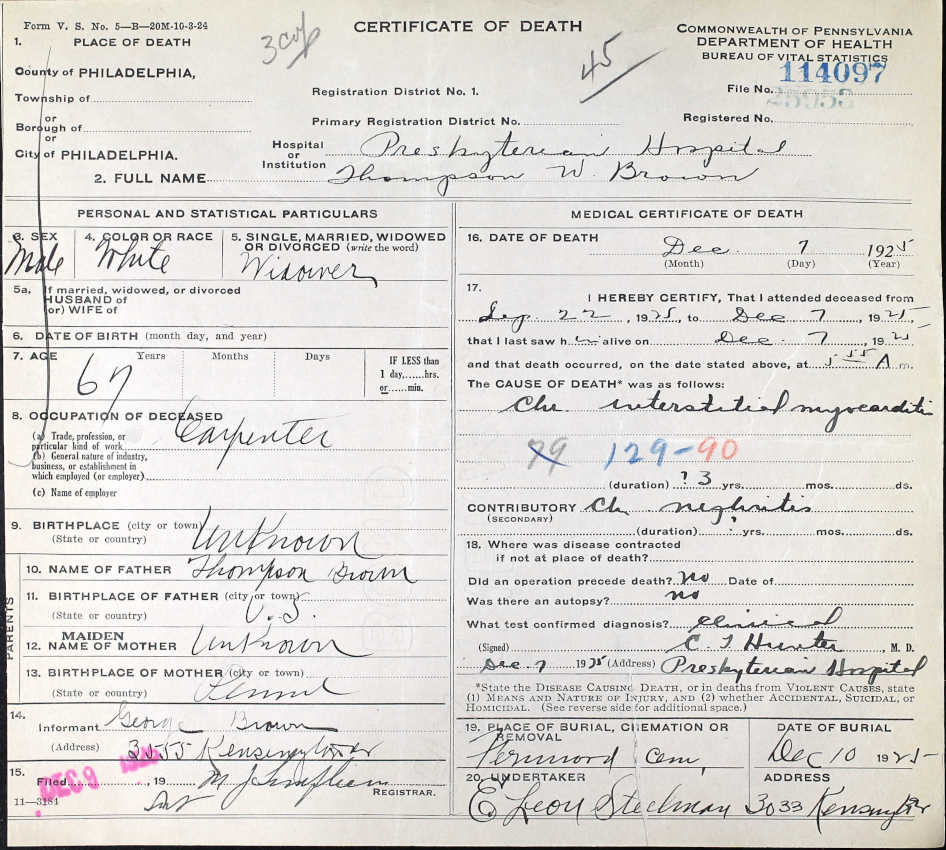 Form V. S. No. 5—B—20M-10-3-24
CERTIFICATE OF DEATH
COMMONWEALTH OF PENNSYLVANIA
DEPARTMENT OF HEALTH
BUREAU OF VITAL STATISTICS
1. PLACE OF DEATH
3 cop
45
County of PHILADELPHIA,
114097
Township of
Registration District No. 1.
File No.
or
Borough of
Primary Registration District No.
Registered No.
or
City of PHILADELPHIA.
Hospital or Institution Presbyterian Hospital
2. FULL NAME Thompson W. Brown
PERSONAL AND STATISTICAL PARTICULARS
3. SEX Male
4. COLOR OR RACE White
5. SINGLE, MARRIED, WIDOWED OR DIVORCED (write the word) Widower
5a. If married, widowed, or divorced
HUSBAND of
(or) WIFE of
6. DATE OF BIRTH (month day, and year)
7. AGE Years Months Days
67
IF LESS than
1 day,......hrs.
or......min.
8. OCCUPATION OF DECEASED
(a) Trade, profession, or
particular kind of work Carpenter
(b) General nature of industry,
business, or establishment in
which employed (or employer)
(c) Name of employer
9. BIRTHPLACE (city or town)
(State or country) Unknown
PARENTS
10. NAME OF FATHER Thompson Brown
11. BIRTHPLACE OF FATHER (city or town)
(State or country) U.S.
12. MAIDEN NAME OF MOTHER Unknown
13. BIRTHPLACE OF MOTHER (city or town)
(State or country)
14.
Informant George Brown
(Address) 3455 Kensington Av
15.
Filed DEC 9, 19
REGISTRAR.
11—3184
MEDICAL CERTIFICATE OF DEATH
16. DATE OF DEATH Dec 7 1925
(Month) (Day) (Year)
17.
I HEREBY CERTIFY, That I attended deceased from
Sep. 22, 1925, to Dec 7, 1925,
that I last saw h im alive on Dec. 7, 1925
and that death occurred, on the date stated above, at 5 55 A m.
The CAUSE OF DEATH* was as follows:
Chr interstitial myocarditis
79 129-90
(duration) ? 3 yrs. mos. ds.
CONTRIBUTORY Ch nephritis
(SECONDARY)
(duration) ? yrs. mos. ds.
18. Where was disease contracted
if not at place of death?
Did an operation precede death? No Date of
Was there an autopsy? no
What test confirmed diagnosis? clinical
(Signed) C. T Hunter, M. D.
Dec. 7 1925 (Address) Presbyterian Hospital
*State the DISEASE CAUSING DEATH, or in deaths from VIOLENT CAUSES, state
(1) MEANS AND NATURE OF INJURY, AND (2) whether ACCIDENTAL, SUICIDAL, or
HOMICIDAL. (See reverse side for additional space.)
19. PLACE OF BURIAL, CREMATION OR REMOVAL
Fernwood Cem,
DATE OF BURIAL
Dec 10 1925
20. UNDERTAKER
E Leon Steelman
ADDRESS
3033 Kensington